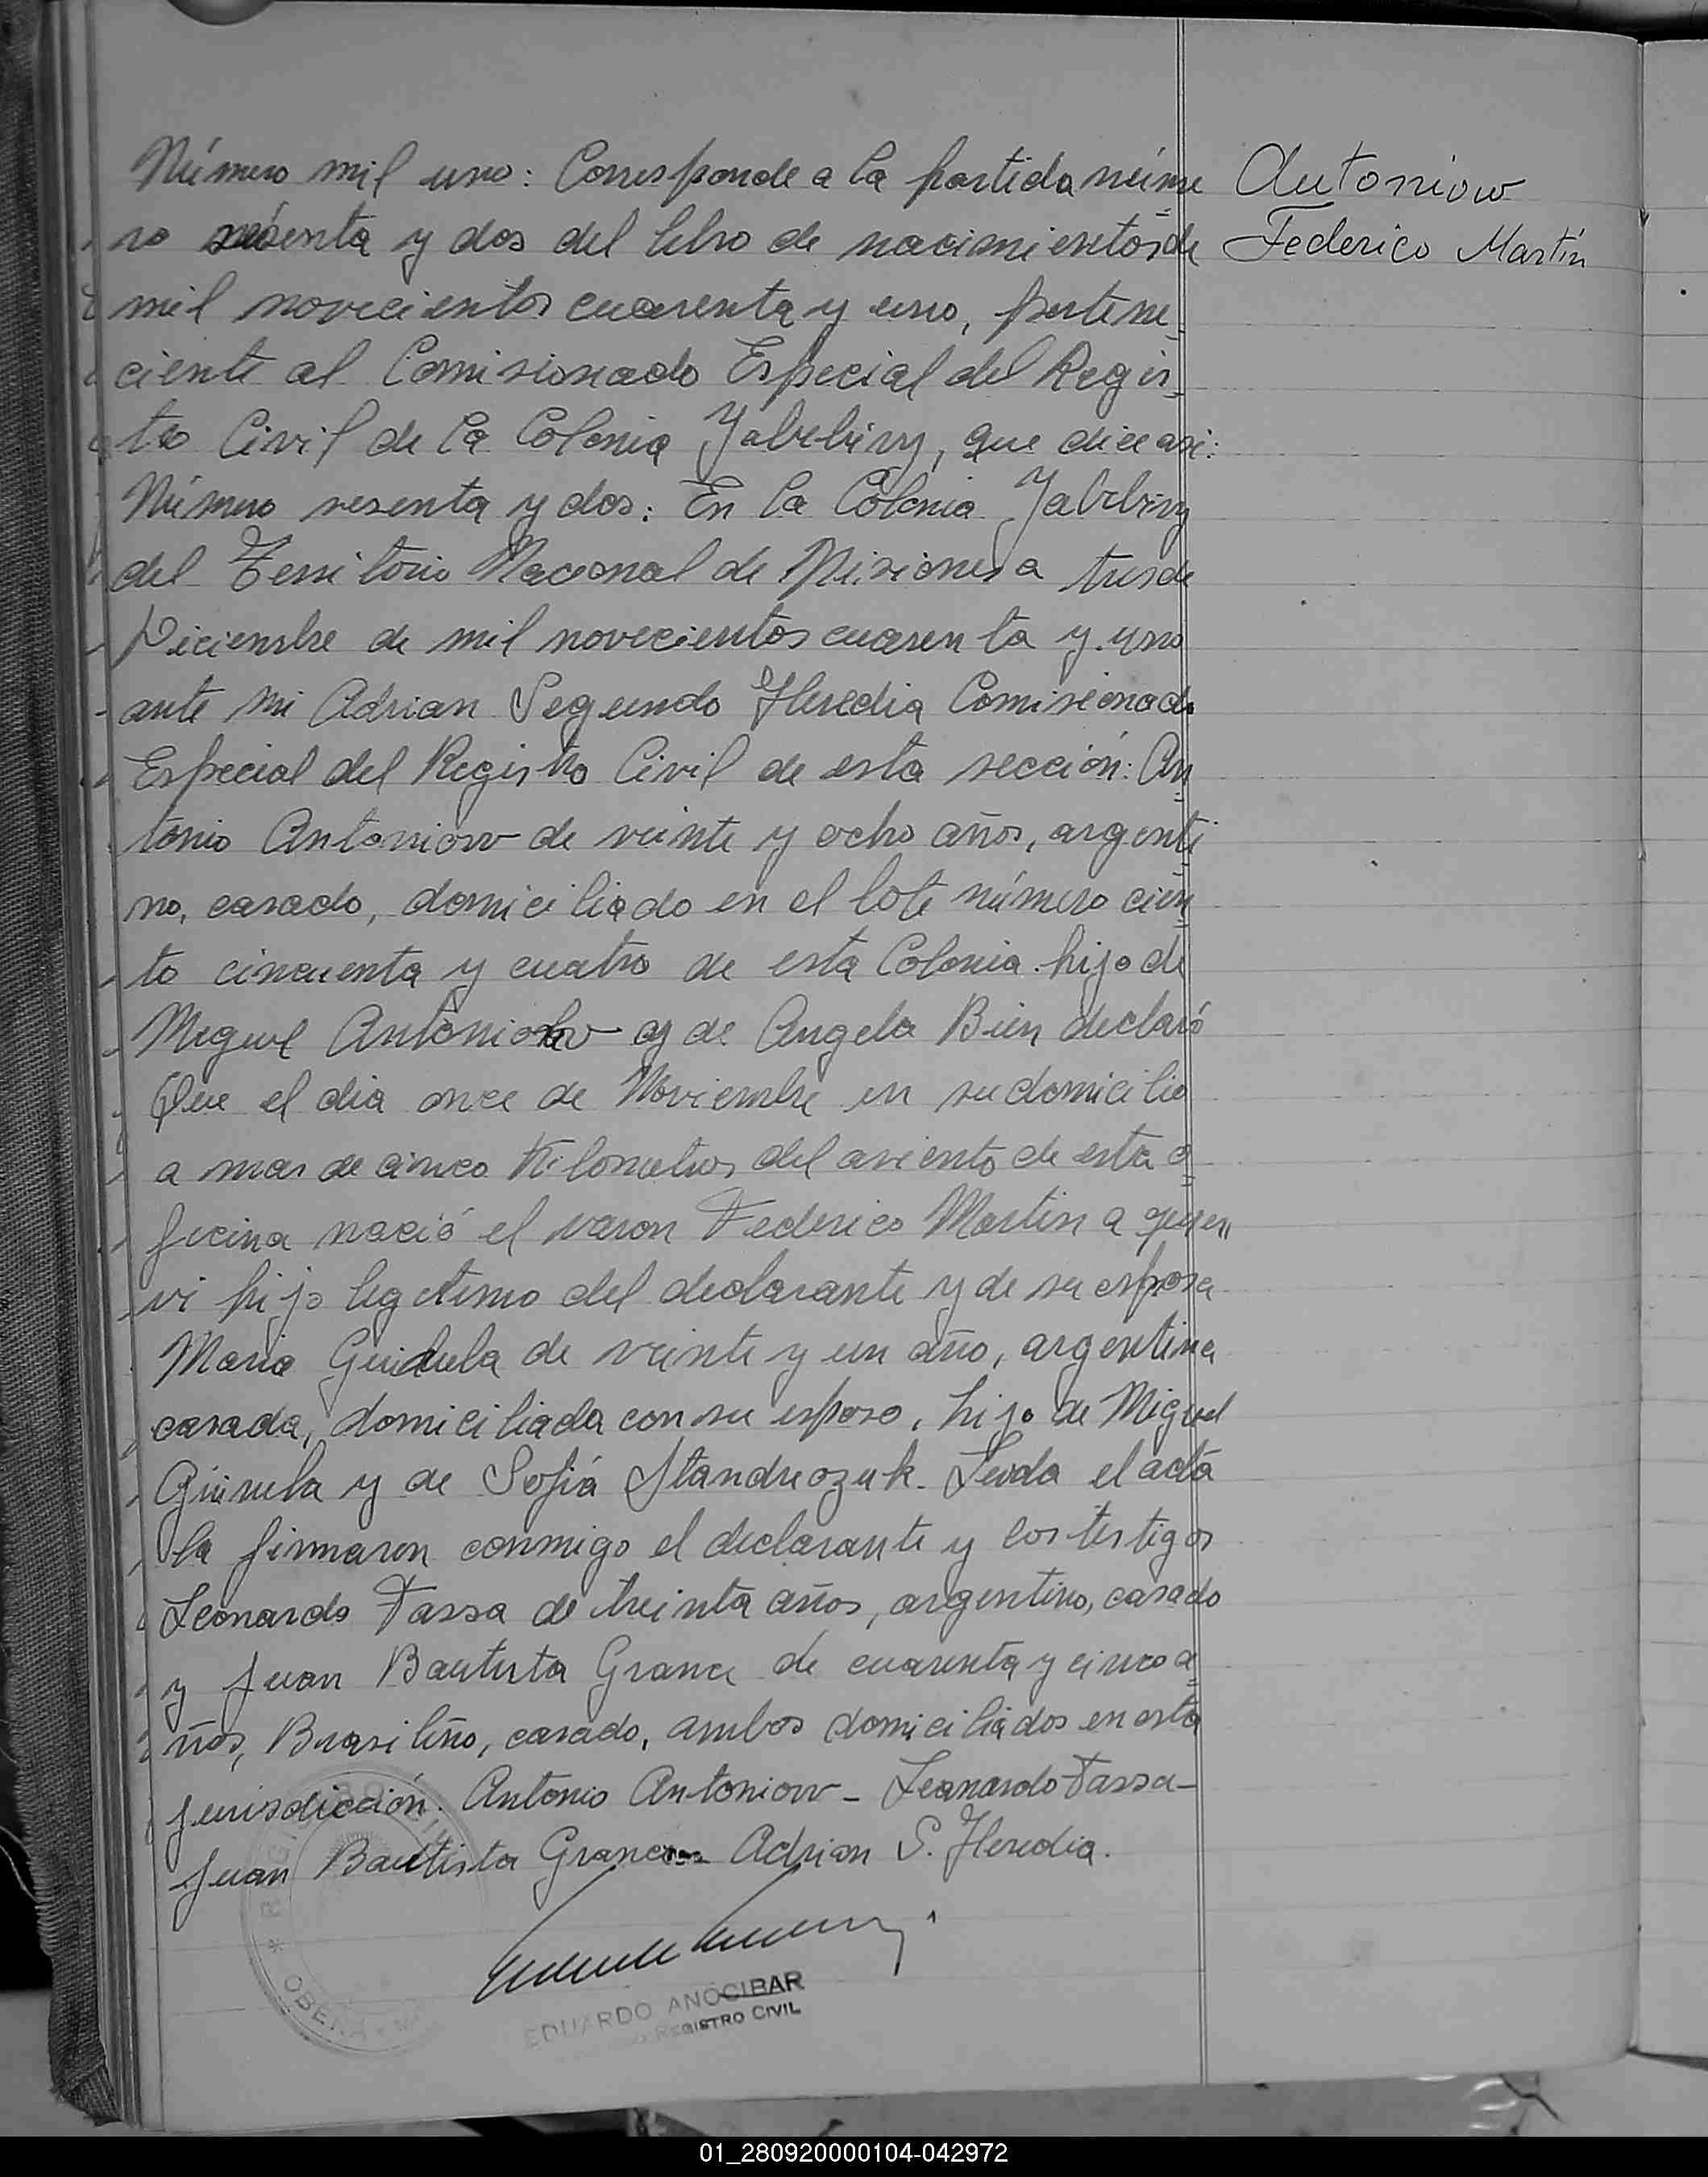 Número mil uno: Corresponde a la partida núme
ro sesenta y dos del libro de nacimientos de
mil novecientos cuarenta y uno, pertene_
ciente al Comisionado Especial del Regis_
tro Civil de la Colonia Yabebiry, que dice asi:
Número sesenta y dos: En la Colonia Yabebiry
del Territorio Nacional de Misiones a tres de
Diciembre de mil novecientos cuarenta y uno
ante mi Adrian Segundo Heredia Comisionado
Especial del Registro Civil de esta sección: An
tonio Antoniow de veinte y ocho años, argenti
no, casado, domiciliado en el lote número cien
to cincuenta y cuatro de esta Colonia hijo de
Miguel Antoniow y de Angela Bien declaró
Que el dia once de Noviembre en su domicilio
a mas de cinco Kilometros del asiento de esta o
ficina nació el varon Federico Martin a quien
vi hijo legitimo del declarante y de su esposa
Maria de veinte y un año, argentina
casada, domiciliada con su esposo, hija de Miguel
y de Sofiá Leida el acta
la firmaron conmigo el declarante y los testigos
Leonardo Fassa de treinta años, argentino, casado
y Juan Bautista de cuarenta y cinco a_
ños, Brasileño, casado, ambos domiciliados en esta
jurisdicción. Antonio Antoniow - Leonardo Fassa -
Juan Bautista Adrian S. Heredia.
Antoniow
Federico Martín
OBERA
EDUARDO ANOCIBAR
REGISTRO CIVIL
01_280920000104-042972